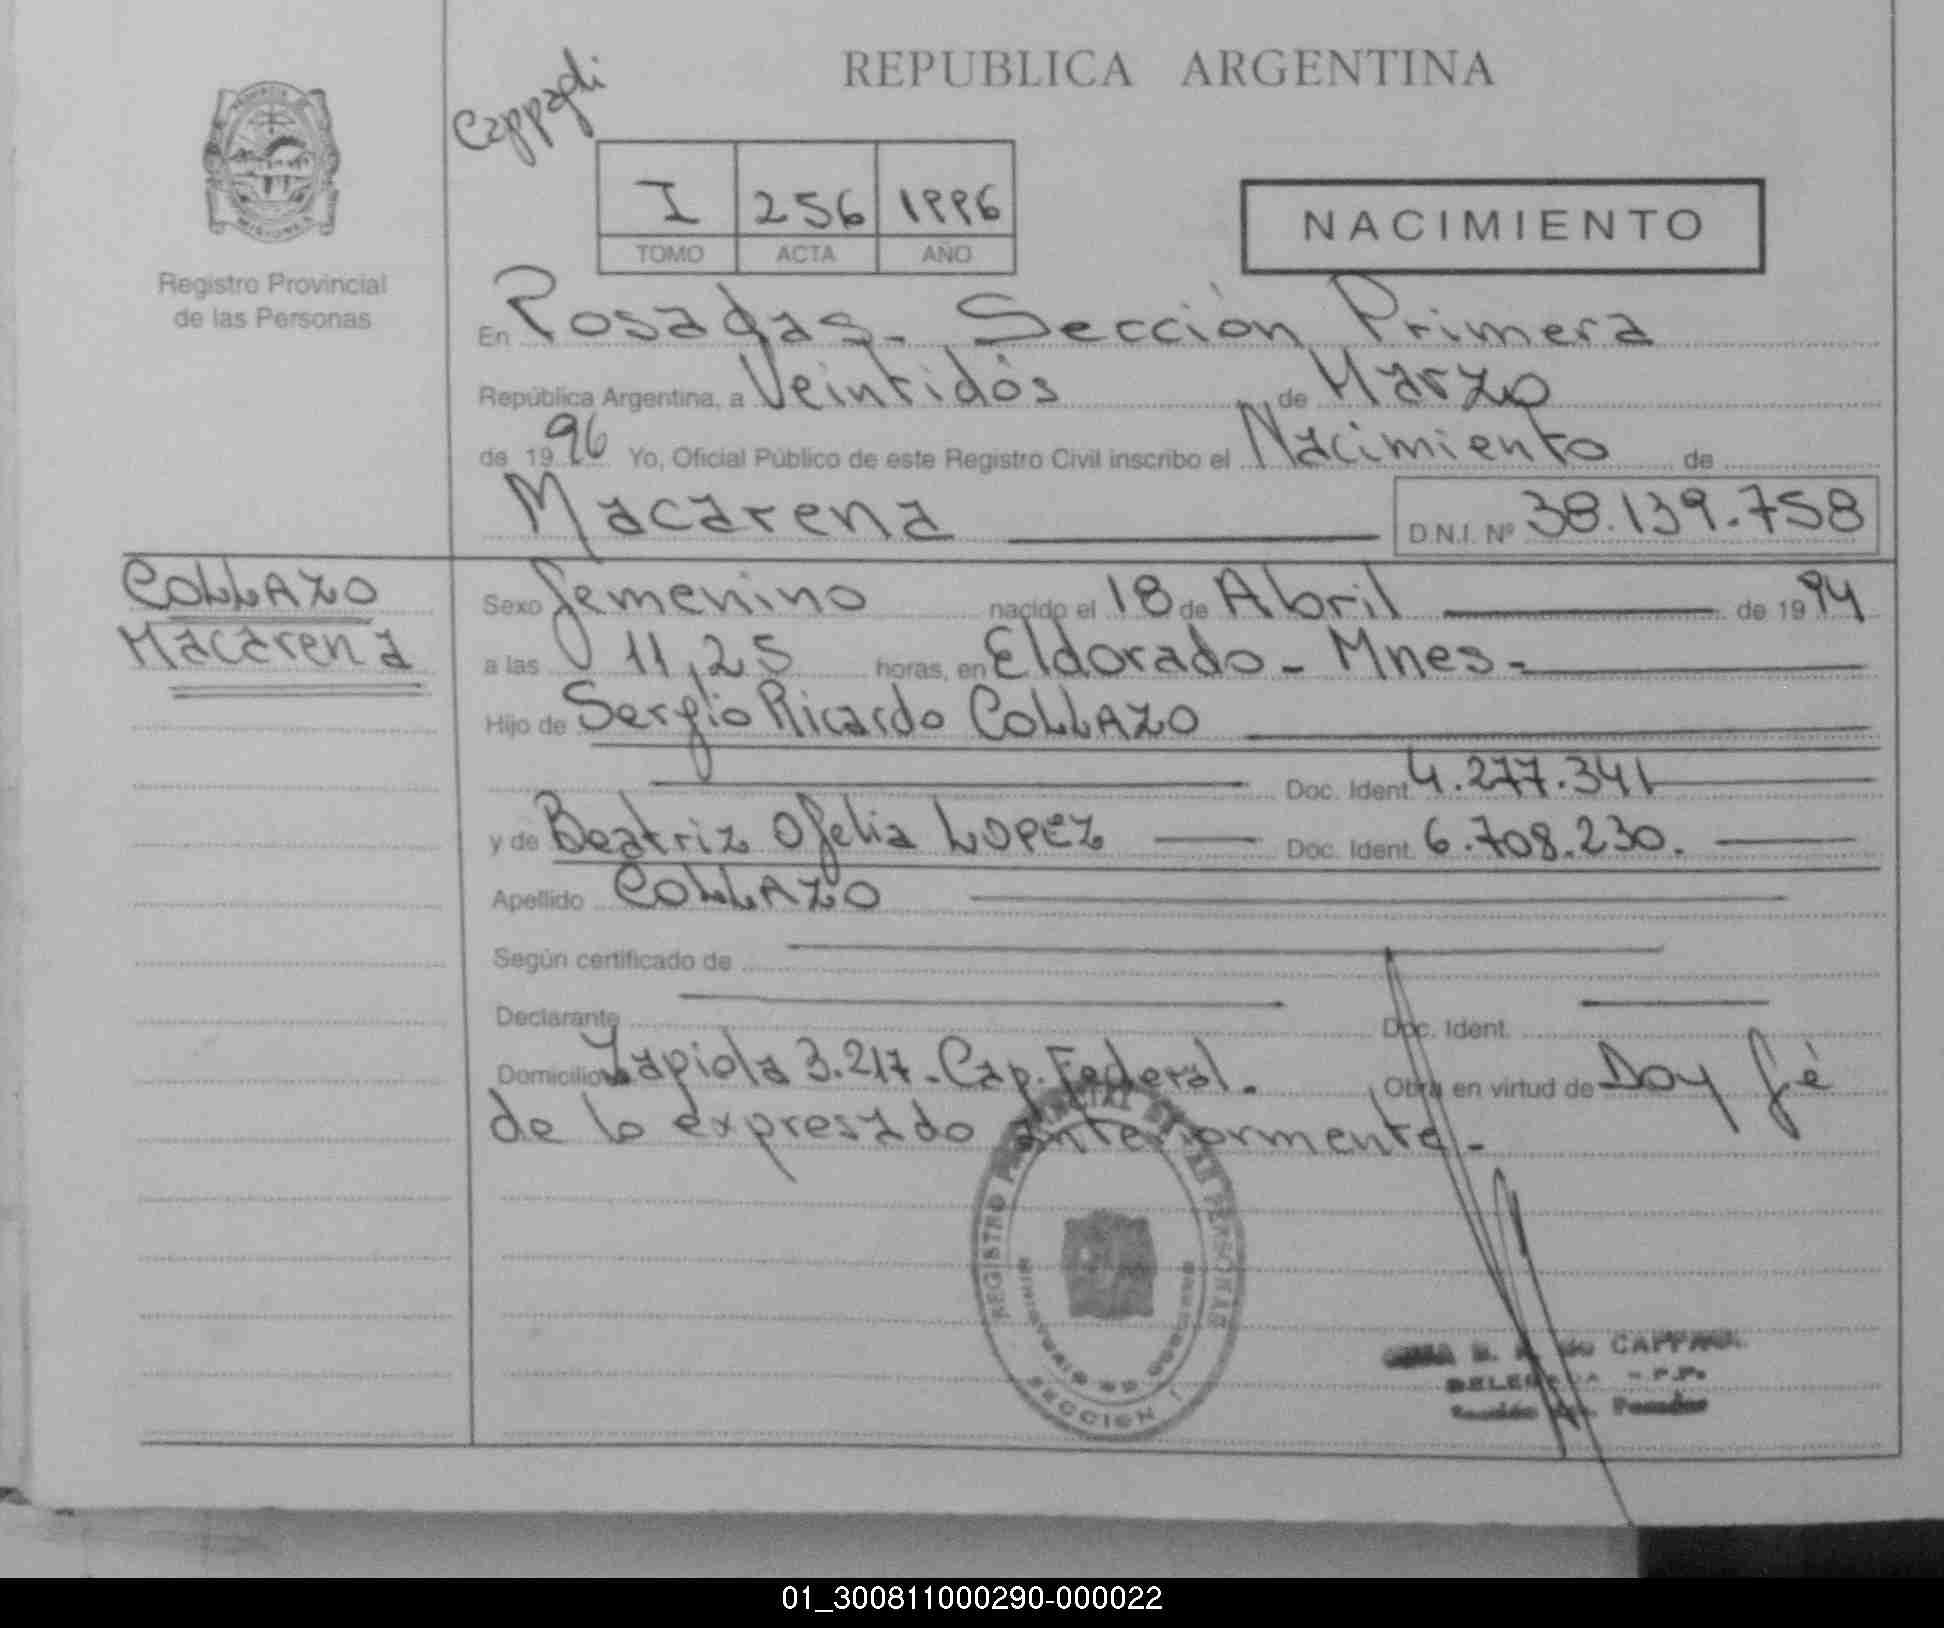 REPUBLICA ARGENTINA
Cappagli
I 256 1996
TOMO ACTA AÑO
NACIMIENTO
Registro Provincial
de las Personas
En Posadas - Sección Primera
República Argentina, a Veintidós de Marzo
de 1996 Yo, Oficial Público de este Registro Civil inscribo el Nacimiento de
Macarena D.N.I. Nº 38.139.758
COLLAZO
Macarena
Sexo femenino nacido el 18 de Abril de 1994
a las 11,25 horas, en Eldorado - Mnes -
Hijo de Sergio Ricardo COLLAZO
Doc. Ident. 4.277.341
y de Beatriz Ofelia LOPEZ Doc. Ident. 6.708.230.
Apellido COLLAZO
Según certificado de
Declarante Doc. Ident.
Domicilio Zapiola 3.217 - Cap. Federal. Obra en virtud de Doy fé
de lo expresado anteriormente -
REGISTRO PROVINCIAL DE LAS PERSONAS
MINISTERIO DE GOBIERNO
SECCION 1
de CAPPAGLI
Posadas
01_300811000290-000022